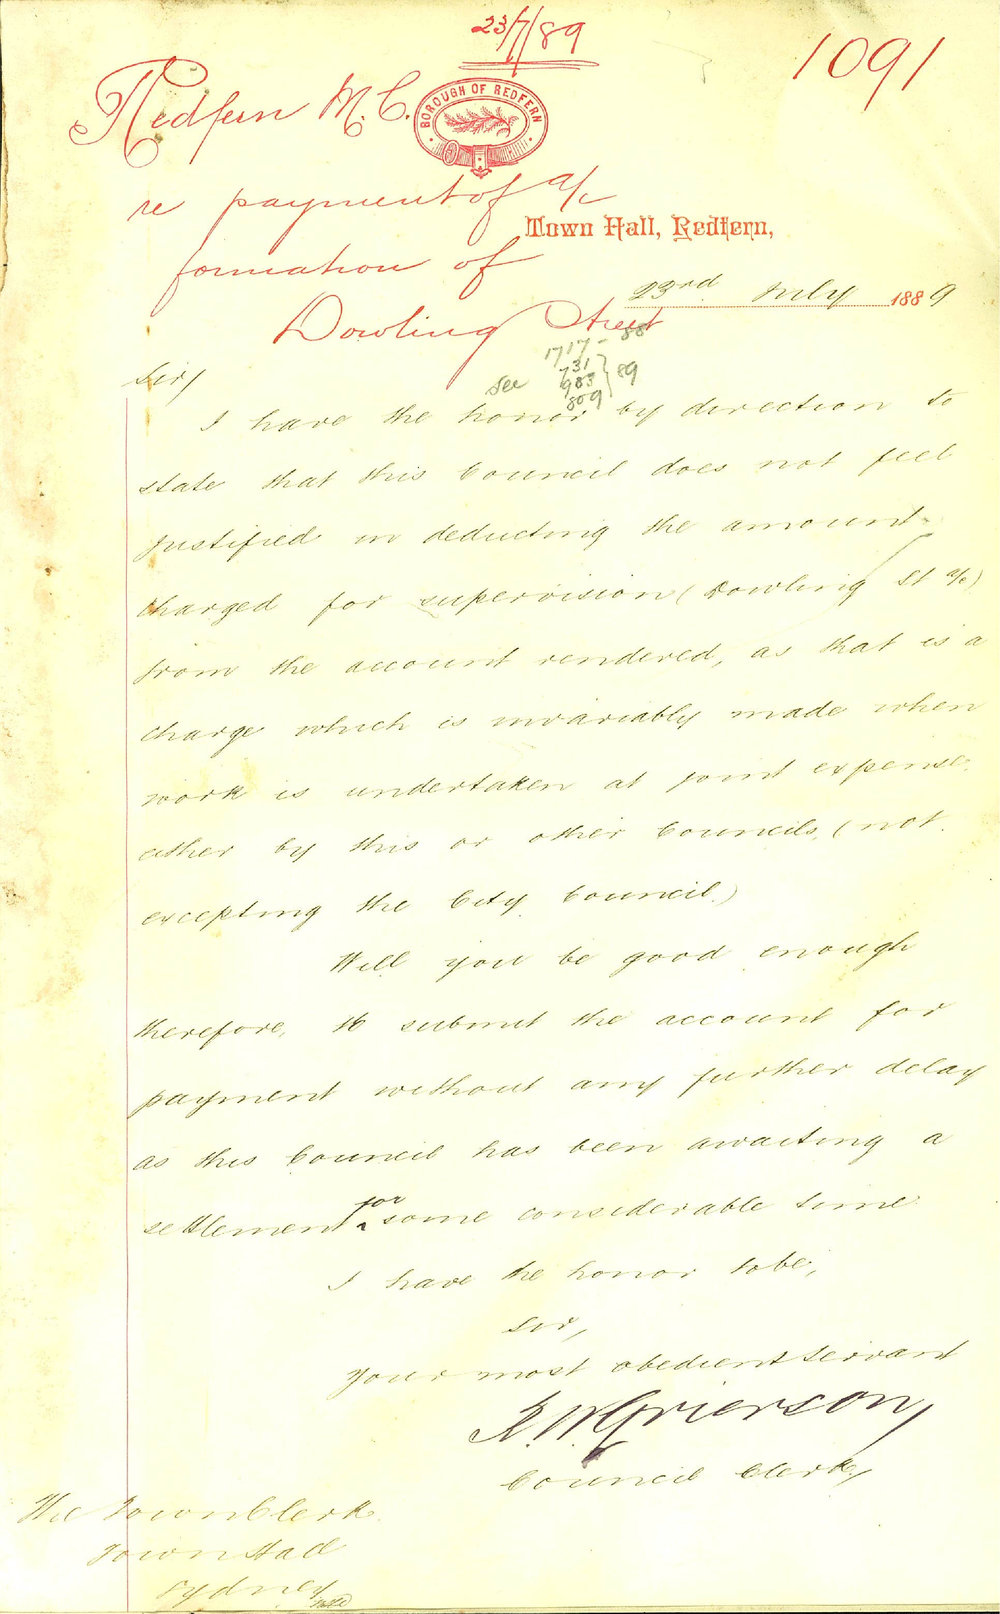 23/7/89
1091
Redfern M.C.
BOROUGH OF REDFERN
re payment of a/c
Town Hall, Redfern,
formation of
23rd July 1889
Dowling Street
1717-88
see 731
983 } 89
809
Sir,
I have the honor by direction to
state that this Council does not feel
justified in deducting the amount
charged for supervision (Dowling St a/c)
from the account rendered, as that is a
charge which is invariably made when
work is undertaken at joint expense
either by this or other Councils, (not
excepting the City Council.)
Will you be good enough
therefore, to submit the account for
payment without any further delay
as this Council has been awaiting a
settlement for some considerable time
I have the honor to be,
Sir,
Your most obedient servant
Grierson
Council Clerk
The Town Clerk
Town Hall
Sydney